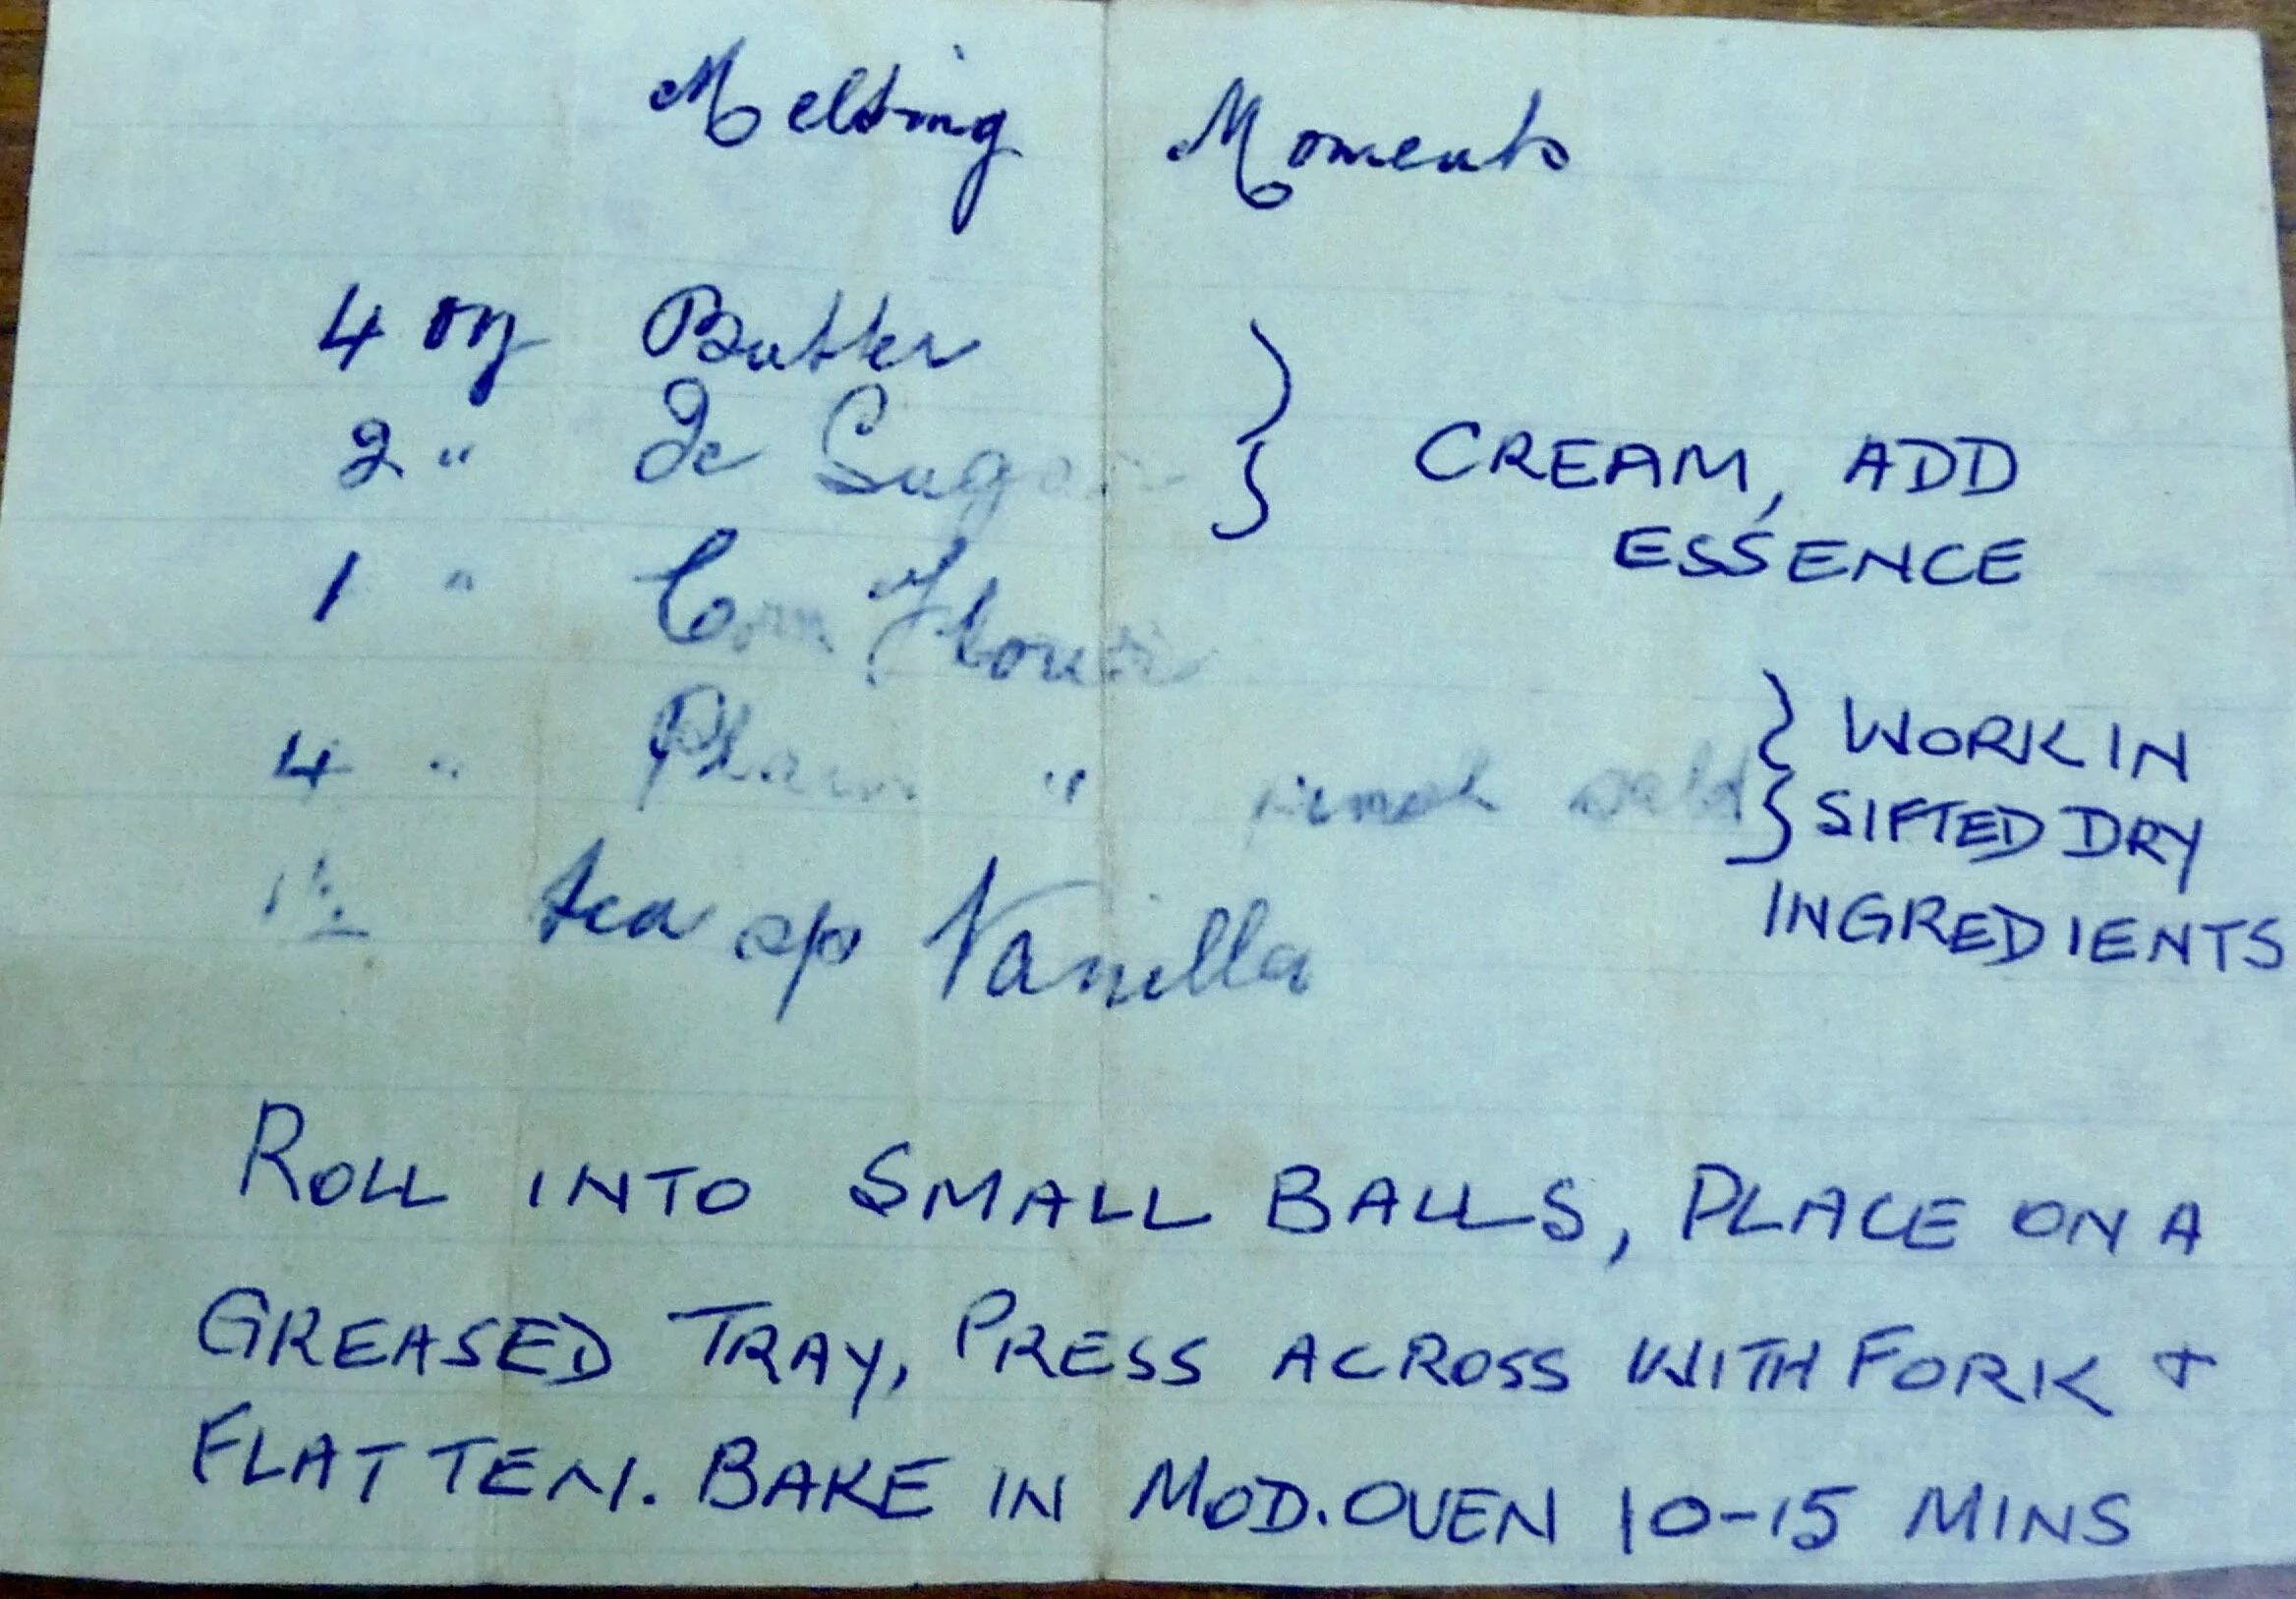 Melting Moments
4 oz Butter
2 " Ic Sugar
CREAM, ADD
ESSENCE
1 " Corn Flour
4 " Plain " pinch salt
WORK IN
SIFTED DRY
INGREDIENTS
tea sp Vanilla
ROLL INTO SMALL BALLS, PLACE ON A
GREASED TRAY, PRESS ACROSS WITH FORK +
FLATTEN. BAKE IN MOD. OVEN 10-15 MINS